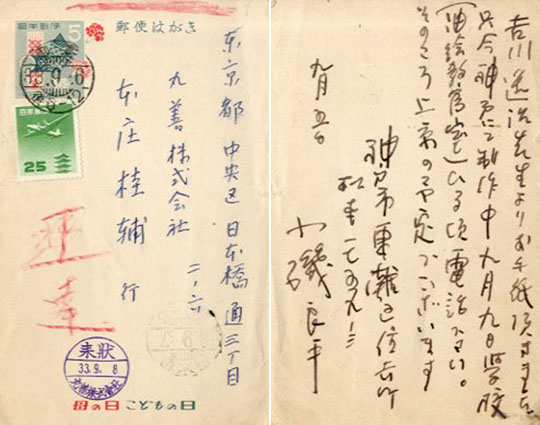 日本郵便
5
郵便はがき
33.9.6
25
速達
東京都中央区日本橋通三丁目
二ノ六
丸善株式会社
本庄桂輔 行
来状
33.9.8
丸善株式会社
母の日 こどもの日
吉川逸治先生よりお手紙頂きました
只今神戸にて制作中 九月九日学校
(油絵教官室)にゐる頃電話下さい。
そのころ上京の予定でございます
九月五日
神戸市東灘区住吉町
小磯良平